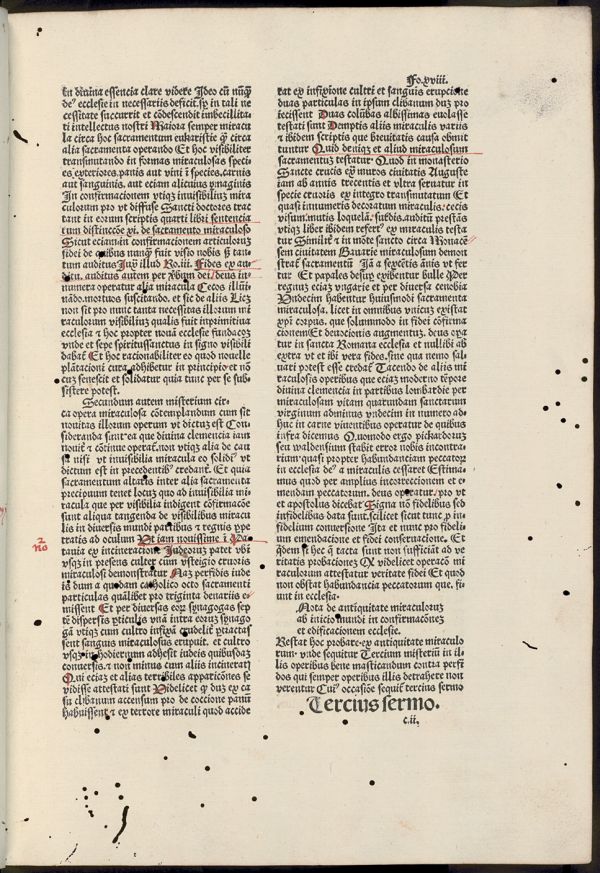 Fo.xviii.
in divina essencia clare videre Ideo cū nunꝗ̄
de᷒ ecclesie in necessariis deficit. sꝫ in tali ne
cessitate succurrit et cōdescendit imbecillita-
ti intellectus nostri Maiora semper miracu
la circa hoc sacramentum eukaristie ꝗ̄ circa
alia sacramenta operando Et hoc visibiliter
transmutando in formas miraculosas speci-
es exteriores. panis aut vini ī species, carnis
aut sanguinis, aut eciam alicuius ymaginis
In confirmacionem vtiqꝫ inuisibiliū mira
culorum pro vt diffuse Sancti doctores trac
tant in eorum scriptis quarti libri sentencia
rum distinccōe xi. de sacramento miraculoso
Sicut eciam in confirmacionem articulorum
fidei de quibus nunꝗ̄ fuit visio nobis ꝫ tan-
tum auditus Iuxta illud Ro. iii. Fides ex au-
ditu. auditus autem per ꝟbum dei. deus in-
numera operatur alia miracula Cecos illumi
nādo. mortuos suscitando. et sic de aliis Licꝫ
non sit pro nunc tanta necessitas illorum mi
raculorum visibiliū qualis fuit in primitiua
ecclesia ⁊ hoc propter nouā ecclesie fundacōꝫ
vnde et sepe spiritussanctus in signo visibili
dabat᷒ Et hoc racionabiliter eo quod nouelle
plātacioni cura adhibetur in principio et nō
cū senescit et solidatur quia tunc per se sub-
sistere potest.
Secundum autem misterium cir-
ca opera miraculosa cōtemplandum cum sit
nouitas illorum operum vt dictus est Con-
sideranda sunt ea que diuina clemencia iam
nouit᷒ ⁊ cōtinue operat᷒. non vtiqꝫ alia de cau
sa nisi vt inuisibilia miracula eo solidi᷒ vt
dictum est in precedentib᷒ credant᷒ Et quia
sacramentum altaris inter alia sacramenta
preciosum tenet locuꝫ quo ad inuisibilia mi-
racula que per visibilia indigent cōfirmacōe
sunt aliqua tangenda de visibilibus miracu
lis in diuersis mundi partibus ⁊ regnis ꝑpe
tratis ad oculum Vt iam nouissime ī Pa-
tauia ex incineracione Iudeoruꝫ patet vbi
vsqꝫ in presens cultrꝰ cum vestigio cruoris
miraculosi demonstratur Naꝫ perfidis iude
is dum a quodam catholico octo sacramenti
particulas quālibet pro triginta denariis e-
missent Et per diuersas eoꝝ synagogas sep
tē dispersis ꝑticulis vnā intra eorum synago
gā vtiqꝫ cum cultro infixā crudelit᷒ ꝑtractas
sent sanguis miraculosus erupuit. et cultro
vsqꝫ in hodiernum adhesit iudeis quibusdaꝫ
conuersis. ⁊ non minus cum aliis incinerat᷒
Qui eciaꝫ et alias terribiles appariciones se
vidisse attestati sunt Videlicet ꝙ duꝫ ex ca
su clibanum accensum pro de coccione panū
habuissent ⁊ ex terrore miraculi quod accide
rat ex infixione cultri et sanguis erupcione
duas particulas in ipsum clibanum duꝫ pro
iecissent Duas colūbas albissimas euolasse
testati sunt Demptis aliis miraculis variis
⁊ ibidem scriptis que breuitatis causa obmit
tuntur Quid deniqꝫ et aliud miraculosum
sacramentuꝫ testatur. Quod in monasterio
Sancte crucis ex̄ muros ciuitatis Auguste
iam ab annis trecentis et vltra seruatur in
specie cruoris ex integro transmutatum Et
quasi innumeris decoratur miraculis. cecis
visum. mutis loquelā. surdis. auditū prestās
vtiqꝫ liber ibidem refert᷒ ex miraculis testa
tur Similit᷒ ⁊ in mōte sancto circa Monacē
sem ciuitatem Bauarie miraculosum demon
strat᷒ sacramentū Iā a sexcētis ānis vt fer
tur Et papales desuꝑ exibentur bulle Per
regnuꝫ eciaꝫ vngarie et per diuersa cenobia
Vndecim habentur huiusmodi sacramenta
miraculosa. licet in omnibus vnicus existat
xp̄i corpus, que solummodo in fidei cōfirma
cionem Et deuocionis augmentuꝫ. deus opa
tur in sancta Romana ecclesia et nullibi ab
extra vt et ibi vera fides. sine qua nemo sal-
uari potest esse credat᷒ Tacendo de aliis mi
raculosis operibus que eciaꝫ moderno tēpore
diuina clemencia in partibus lombardie per
miraculosam vitam quarundam sanctarum
virginum adminus vndecim in numero ad-
huc in carne viuentibus operatur de quibus
infra dicemus Quomodo ergo pickardoruꝫ
seu waldensium stabit error nobis incontra-
rium quasi propter habundanciam peccatorꝫ
in ecclesia de᷒ a miraculis cessaret Estima-
mus quod per amplius incorreccionem et e-
mendam peccatorum. deus operatur, pro vt
et apostolus dicebat Signa nō fidelibus sed
infidelibus data sunt. scilicet sicut tunc ꝓ in-
fidelium conuersione Ita et nunc pro fideli-
um emendacione et fidei conseruacione. Et
q̄dem si hec q̄ tacta sunt non sufficiāt ad ve
ritatis probacioneꝫ Q̄ videlicet operacō mi
raculorum attestatur veritate fidei Et quod
non obstat habundancia peccatorum que. fi-
unt in ecclesia.
Nota de antiquitate miraculoruꝫ
ab inicio mundi in confirmacōneꝫ
et edificationem ecclesie.
Restat hoc probare. ex antiquitate miraculo
rum. vnde sequitur Tercium misterium in il-
lis operibus bene masticandum contra perfi
dos qui semper operibus illis detrahere non
verentur Cui᷒ occasiōe sequit᷒ tercius sermo
Tercius sermo.
c.ii.